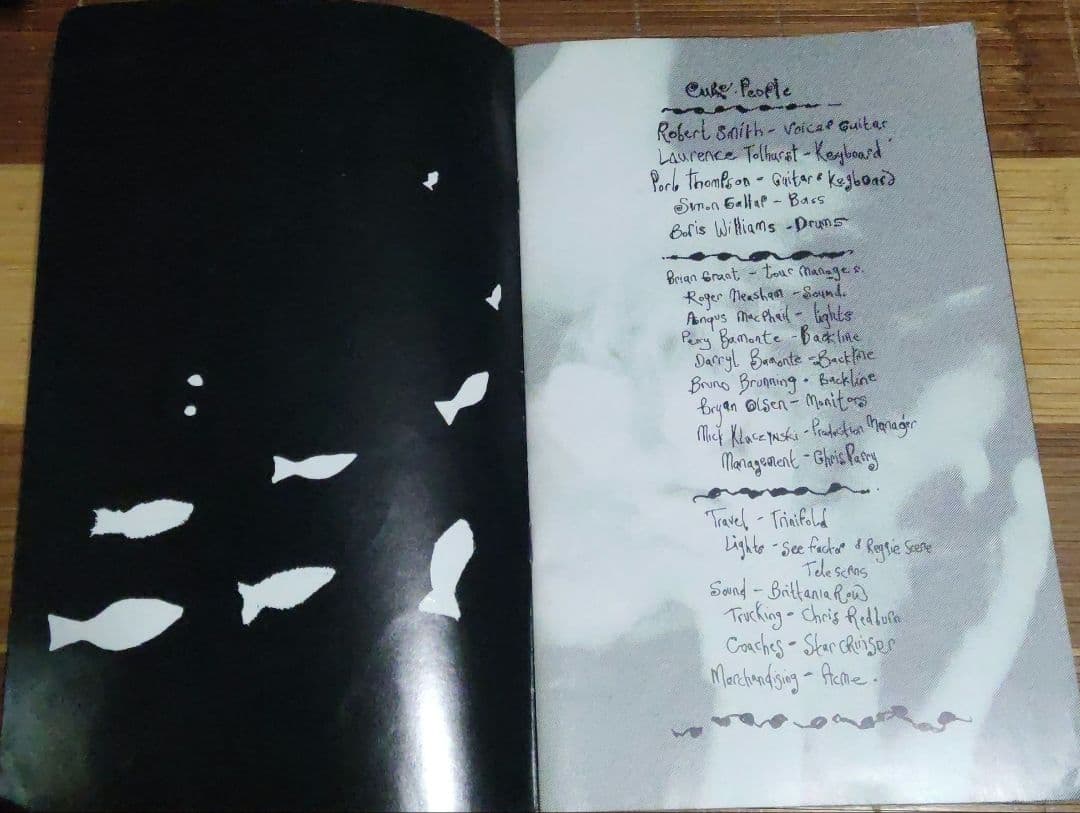 Cure People
Robert Smith - Voice & Guitar
Laurence Tolhurst - Keyboard
Porl Thompson - Guitar & Keyboard
Simon Gallup - Bass
Boris Williams - Drums
Brian Grant - tour manager.
Roger Neasham - Sound.
Angus MacPhail - lights
Perry Bamonte - Backline
Darryl Bamonte - Backline
Bruno Brunning - Backline
Bryan Olsen - Monitors
Mick Kluczynski - Production Manager
Management - Chris Parry
Travel - Trinifold
Lights - See factor & Reggie Scene
Telescans
Sound - Brittania Row
Trucking - Chris Redburn
Coaches - Star cruiser
Merchandising - Acme.